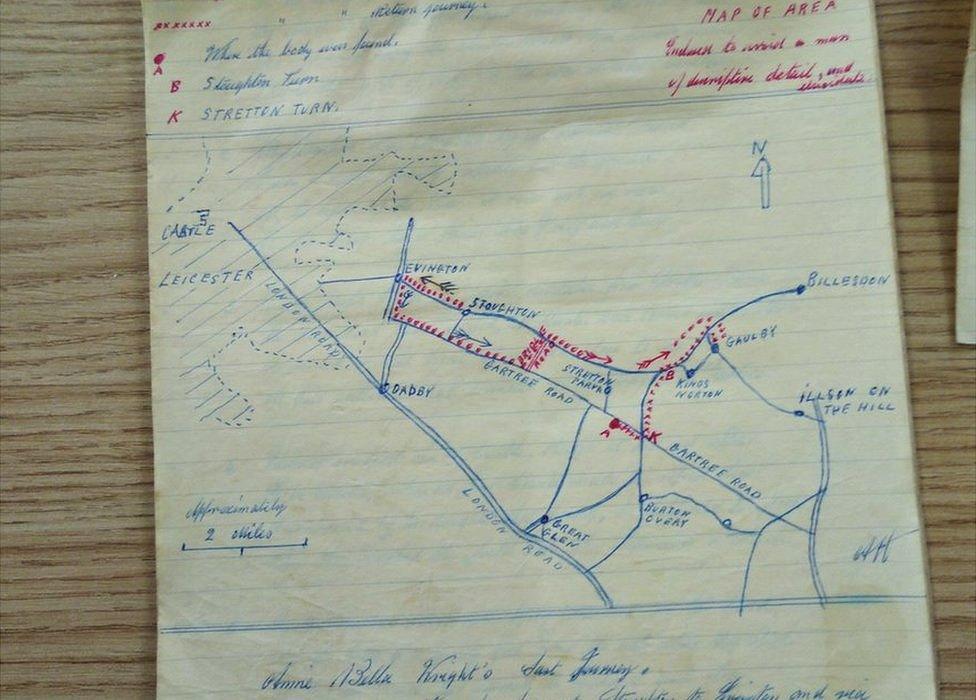 xxxxxxx " " return journey.
A Where the body was found.
B Stoughton Turn
K STRETTON TURN.
MAP OF AREA
Endeavr to avoid a mass
of descriptive detail, and
N
CASTLE
LEICESTER
LONDON ROAD
EVINGTON
STOUGHTON
BILLESDON
GAULBY
BRIDLE
ROAD
STRETTON
PARVA
B
KINGS
NORTON
GARTREE ROAD
OADBY
ILLSON ON
THE HILL
A
K
GARTREE ROAD
LONDON
ROAD
GREAT
GLEN
BURTON
OVERY
Approximately
2 Miles
Annie Bella Wright's Last Journey.
Stoughton to Evington and via